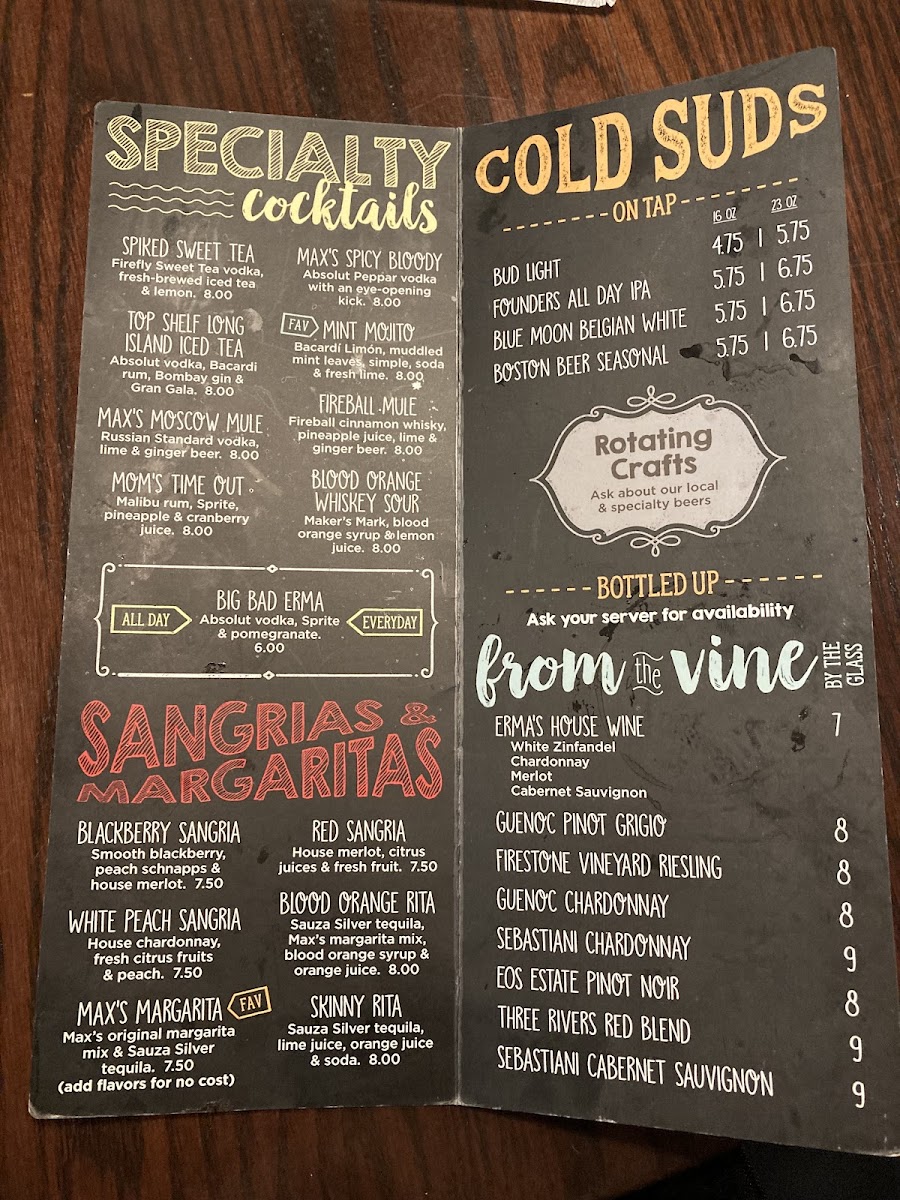 SPECIALTY
cocktails
SPIKED SWEET TEA
Firefly Sweet Tea vodka,
fresh-brewed iced tea
& lemon. 8.00
TOP SHELF LONG
ISLAND ICED TEA
Absolut vodka, Bacardi
rum, Bombay gin &
Gran Gala. 8.00
MAX'S MOSCOW MULE
Russian Standard vodka,
lime & ginger beer. 8.00
MOM'S TIME OUT
Malibu rum, Sprite,
pineapple & cranberry
juice. 8.00
MAX'S SPICY BLOODY
Absolut Peppar vodka
with an eye-opening
kick. 8.00
FAV MINT MOJITO
Bacardi Limón, muddled
mint leaves, simple, soda
& fresh lime. 8.00
FIREBALL MULE
Fireball cinnamon whisky,
pineapple juice, lime &
ginger beer. 8.00
BLOOD ORANGE
WHISKEY SOUR
Maker's Mark, blood
orange syrup & lemon
juice. 8.00
ALL DAY
BIG BAD ERMA
Absolut vodka, Sprite
& pomegranate.
6.00
EVERYDAY
SANGRIAS &
MARGARITAS
BLACKBERRY SANGRIA
Smooth blackberry,
peach schnapps &
house merlot. 7.50
WHITE PEACH SANGRIA
House chardonnay,
fresh citrus fruits
& peach. 7.50
MAX'S MARGARITA FAV
Max's original margarita
mix & Sauza Silver
tequila. 7.50
(add flavors for no cost)
RED SANGRIA
House merlot, citrus
juices & fresh fruit. 7.50
BLOOD ORANGE RITA
Sauza Silver tequila,
Max's margarita mix,
blood orange syrup &
orange juice. 8.00
SKINNY RITA
Sauza Silver tequila,
lime juice, orange juice
& soda. 8.00
COLD SUDS
ON TAP
16 OZ 23 OZ
BUD LIGHT 4.75 | 5.75
FOUNDERS ALL DAY IPA 5.75 | 6.75
BLUE MOON BELGIAN WHITE 5.75 | 6.75
BOSTON BEER SEASONAL 5.75 | 6.75
Rotating
Crafts
Ask about our local
& specialty beers
BOTTLED UP
Ask your server for availability
from the vine
BY THE
GLASS
ERMA'S HOUSE WINE 7
White Zinfandel
Chardonnay
Merlot
Cabernet Sauvignon
GUENOC PINOT GRIGIO 8
FIRESTONE VINEYARD RIESLING 8
GUENOC CHARDONNAY 8
SEBASTIANI CHARDONNAY 9
EOS ESTATE PINOT NOIR 8
THREE RIVERS RED BLEND 9
SEBASTIANI CABERNET SAUVIGNON 9